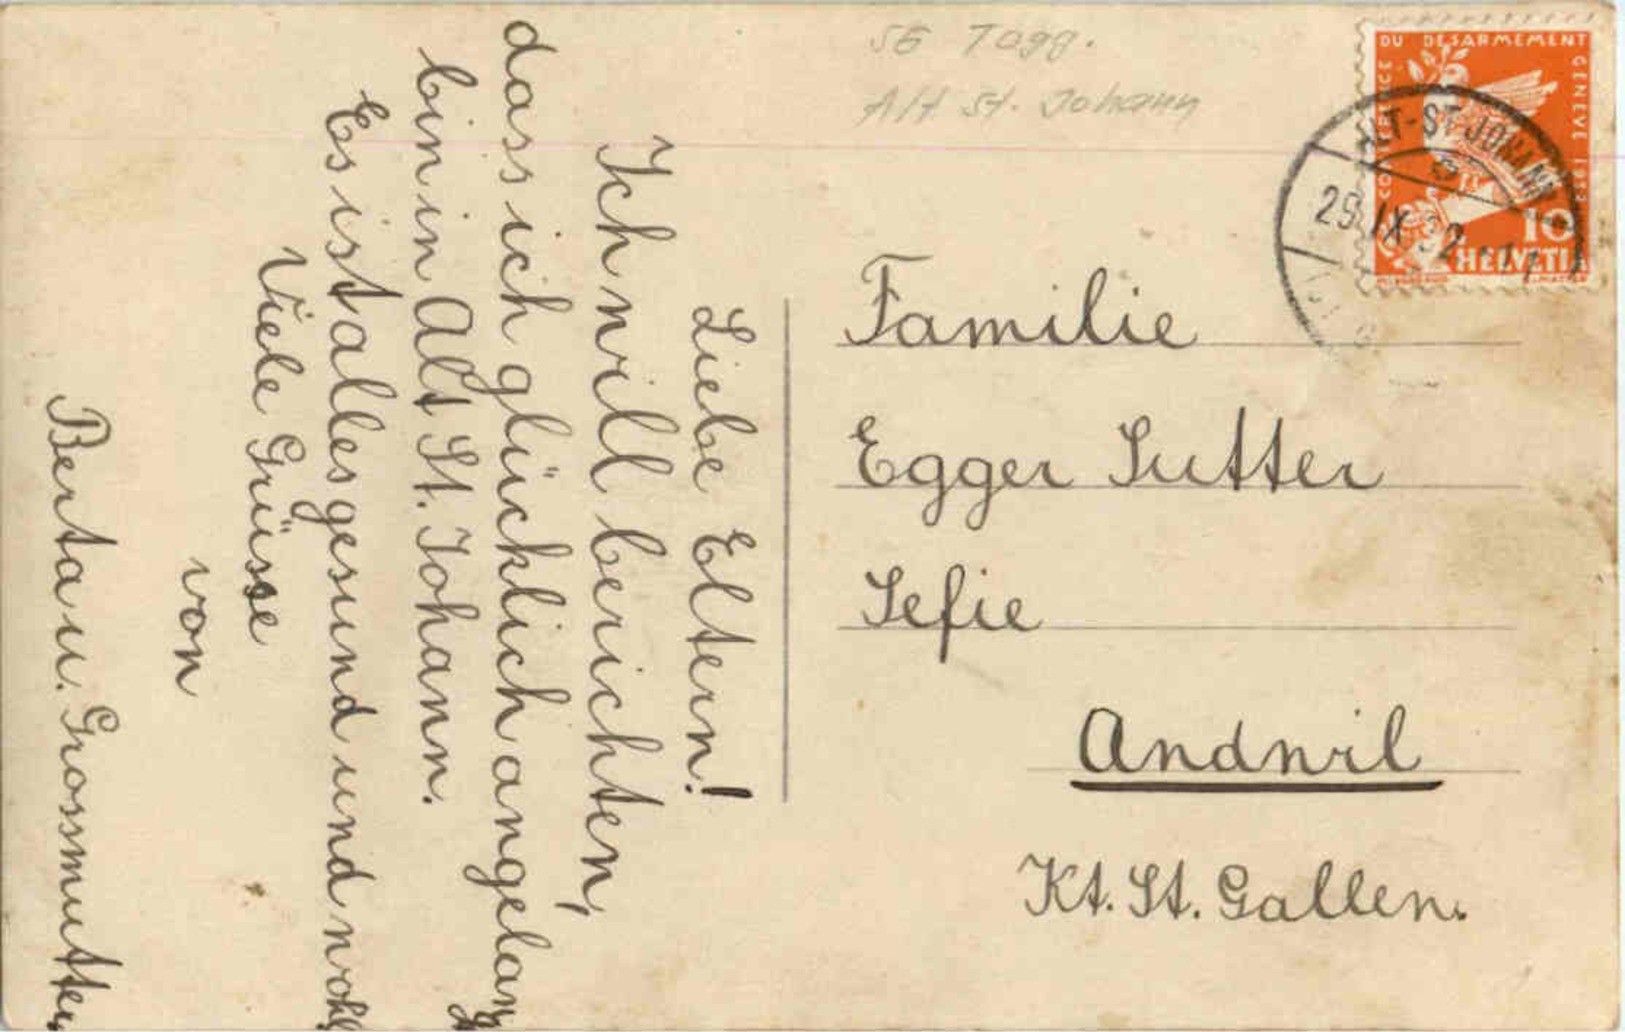 SG Togg.
Alt St. Johann
DU DÉSARMEMENT
GENÈVE 1932
CONFÉRENCE
10
HELVETIA
ALT-ST. JOHANN
29.IX.32
Familie
Egger Sutter
Sefie
Andwil
Kt. St. Gallen.
Liebe Eltern!
Ich will berichten,
dass ich glücklich angelangt
bin in Alt St. Johann.
Es ist alles gesund und wohl
Viele Grüsse
von
Berta u. Grossmutter